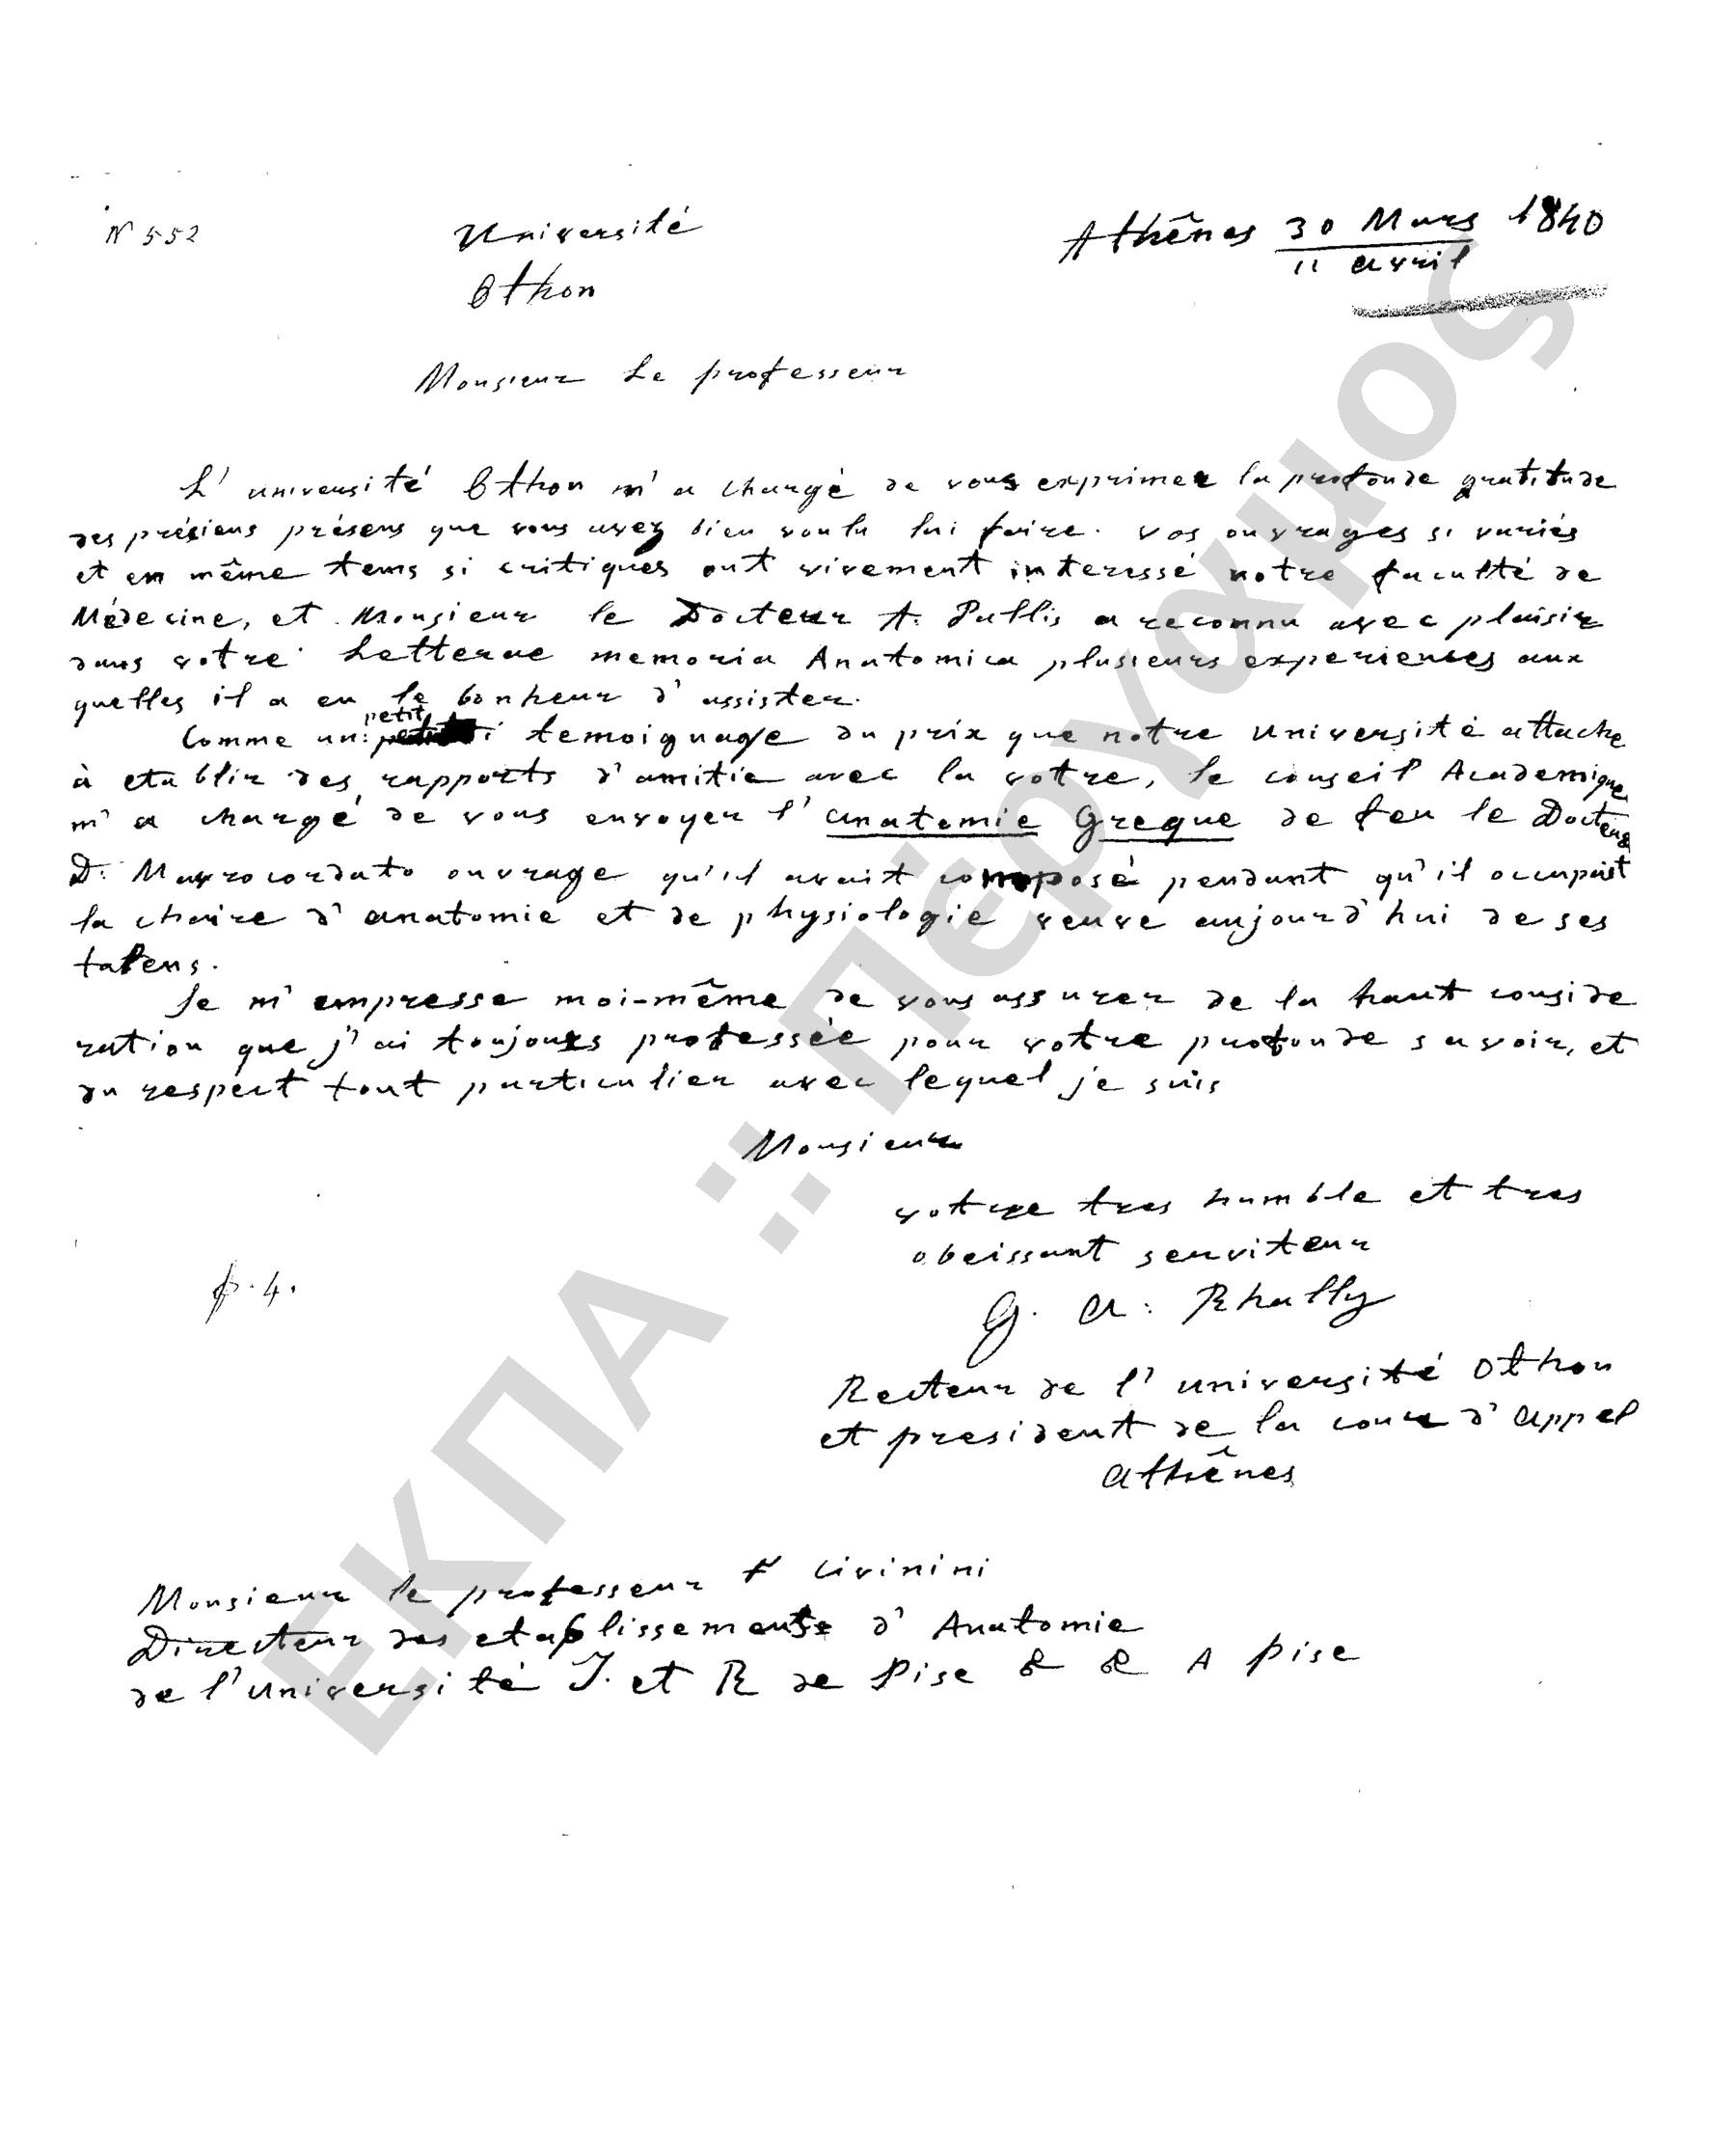 N 552
Université
Othon
Athênes 30 Mars 1840
11 avril
Monsieur Le professeur
L' université Othon m'a chargé de vous exprimer la profonde gratitude
des préciens présens que vous avez bien voulu lui faire. vos ouvrages si variés
et em même tems si critiques ont vivement interessé notre faculté de
Médecine, et Monsieur le Docteur A. Pallis a reconnu avec plaisir
dans votre Letterae memoria Anatomica plusieurs experiences aux
quelles il a eu le bonheur d' assister.
Comme un petit temoignage du prix que notre Université attache
à etablir des rapports d'amitie avec la votre, le conseil Academique
m' a chargé de vous envoyer l' anatomie Greque de feu le Docteur
D. Mavrocordato ouvrage qu'il avait composé pendant qu'il occupait
la chaire d' anatomie et de physiologie veuve aujourd'hui de ses
talens.
Je m' empresse moi-même de vous assurer de la haut conside
ration que j'ai toujours professée pour votre profonde savoir, et
du respect tout particulier avec lequel je suis
Monsieur
votre tres humble et tres
obeissant serviteur
G. A. Rhally
p. 4.
Recteur de l' université Othon
et president de la cour d' appel
Athênes
Monsieur le professeur F Civinini
Directeur des etablissements d' Anatomie
de l'université I. et R de Pise & & A pise
ΕΚΠΑ :: Πέργαμος